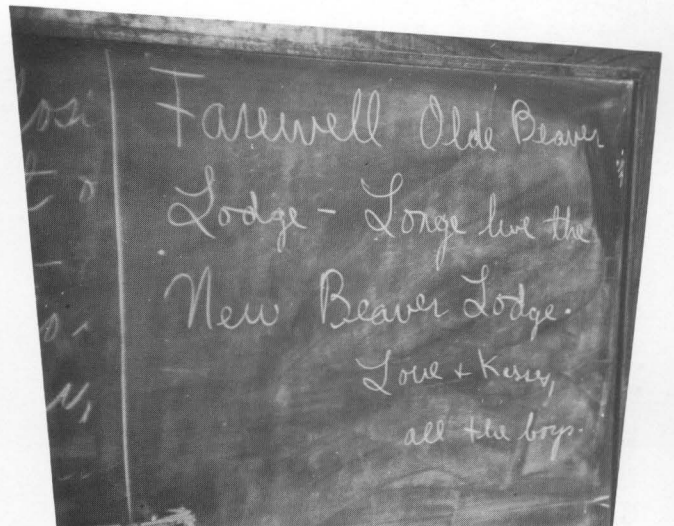 Farewell Olde Beaver
Lodge - Longe live the
New Beaver Lodge.
Love + Kisses,
all the boys.